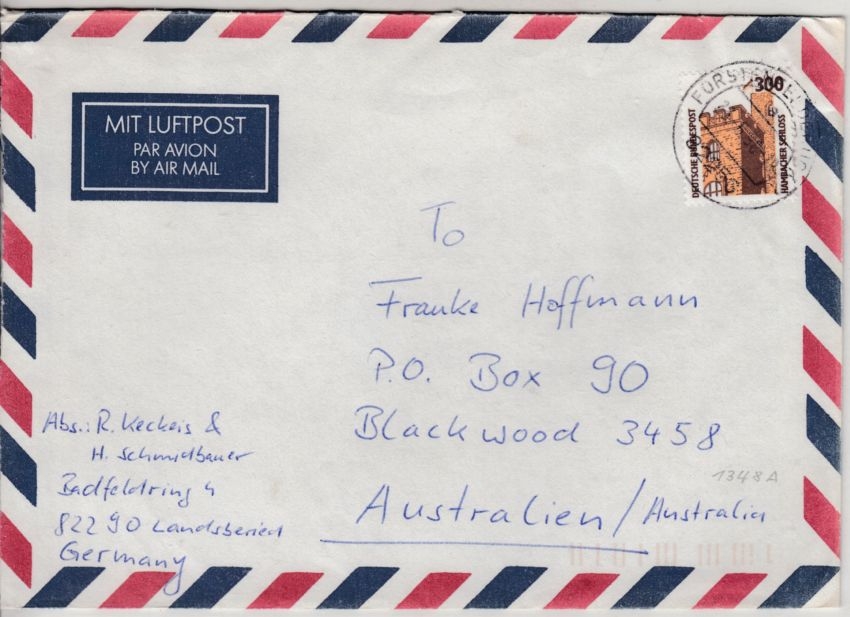 MIT LUFTPOST
PAR AVION
BY AIR MAIL
300
DEUTSCHE BUNDESPOST
HAMBACHER SCHLOSS
To
Frauke Hoffmann
P.O. Box 90
Blackwood 3458
Australien / Australia
1348A
Abs.: R. Keckeis &
H. Schmidbauer
Badfeldring 4
82290 Landsberied
Germany